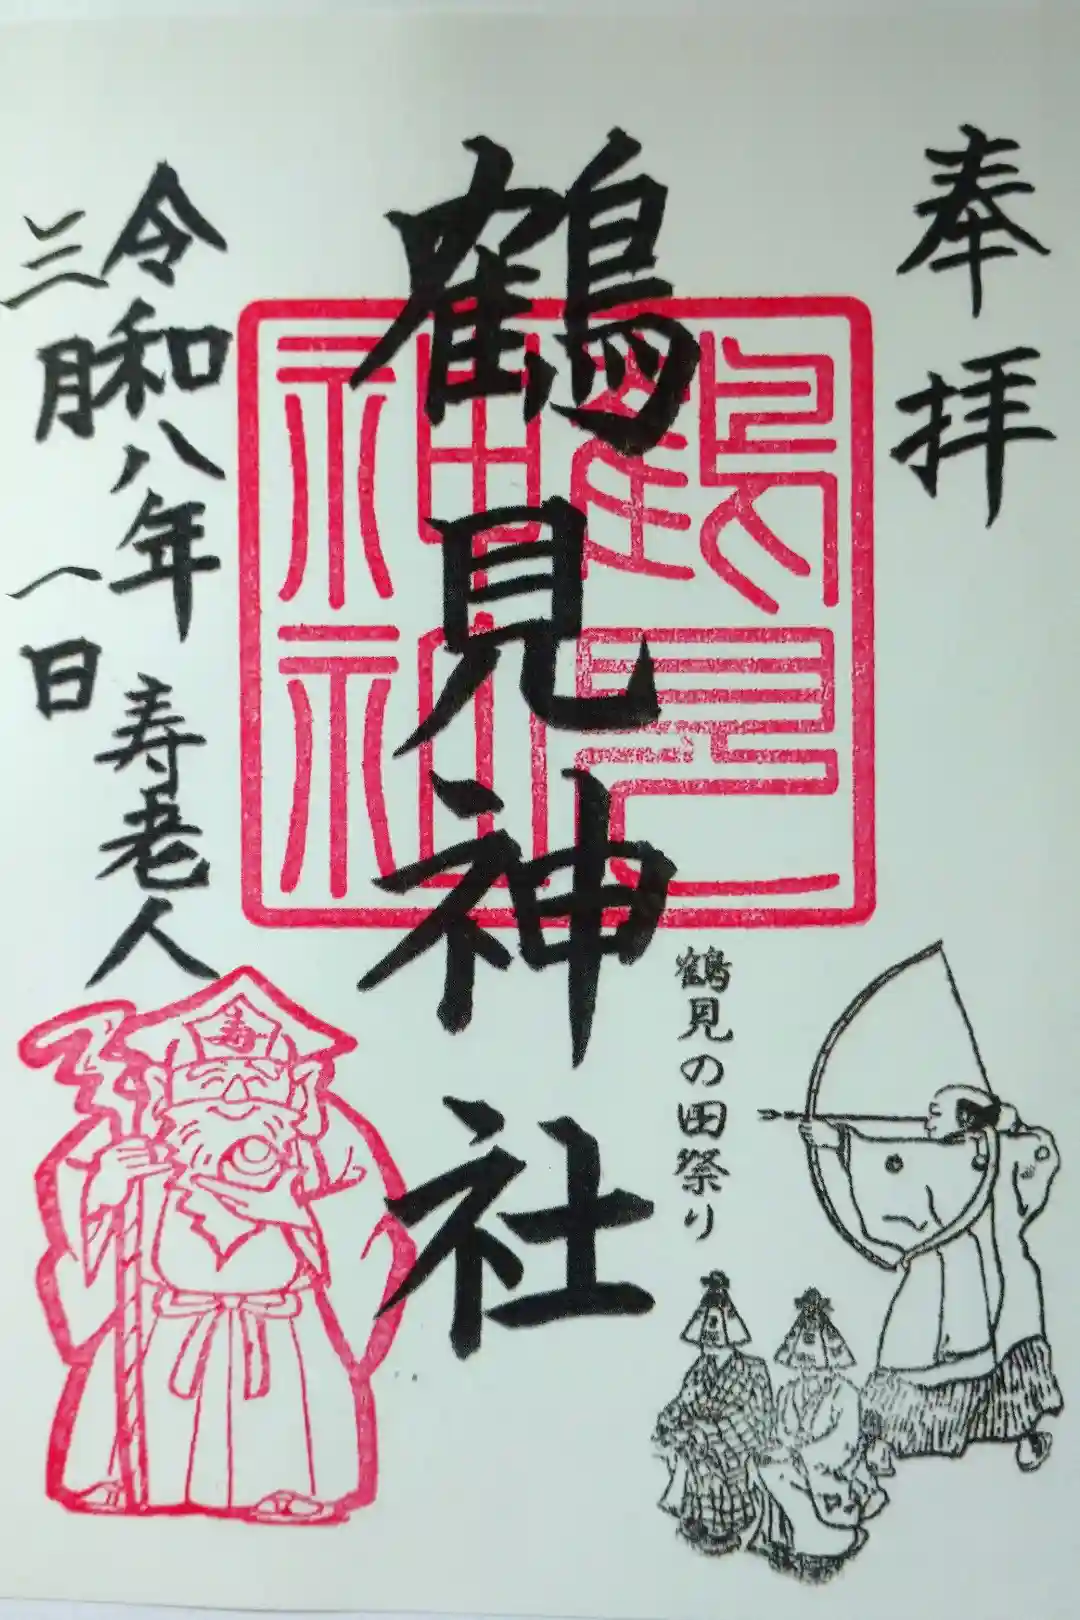 奉拝
鶴見神社
鶴見神社
鶴見の田祭り
令和八年
三月一日
寿老人
寿